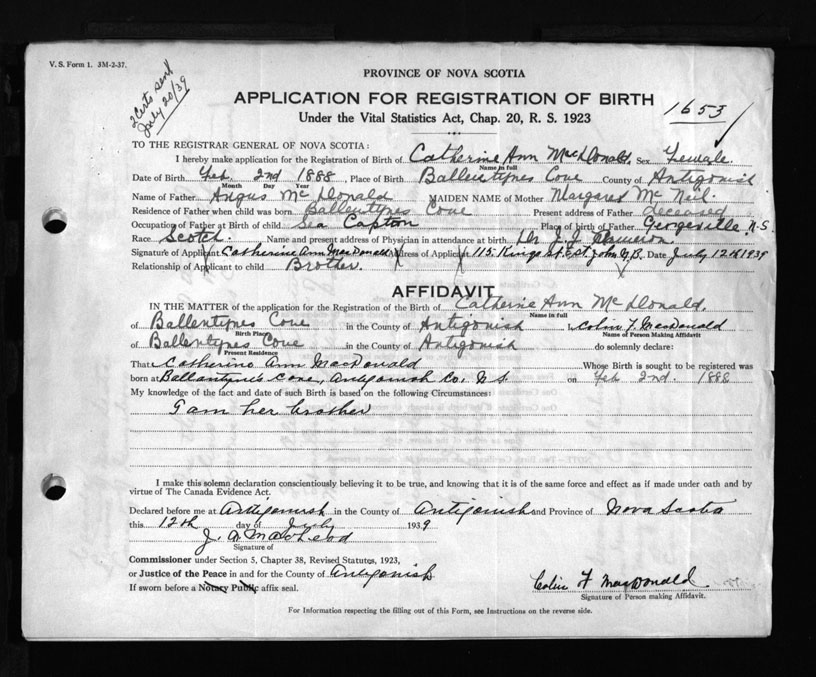 V. S. Form 1. 3M-2-37.
2 Certs sent
July 20/39
PROVINCE OF NOVA SCOTIA
APPLICATION FOR REGISTRATION OF BIRTH
1653
Under the Vital Statistics Act, Chap. 20, R. S. 1923
TO THE REGISTRAR GENERAL OF NOVA SCOTIA:
I hereby make application for the Registration of Birth of Catherine Ann McDonald, Sex Female.
Name in full
Date of Birth Feb. 2nd 1888, Place of Birth Ballentynes Cove County of Antigonish
Month Day Year
Name of Father Angus McDonald MAIDEN NAME of Mother Margaret McNeil.
Residence of Father when child was born Ballentynes Cove Present address of Father Deceased
Occupation of Father at Birth of child Sea Capton Place of birth of Father Georgeville, N.S.
Race Scotch. Name and present address of Physician in attendance at birth Dr J. J. Cameron
Signature of Applicant Catherine Ann MacDonald Address of Applicant 115 Kings St. E. St. John N.B. Date July 12th 1939
Relationship of Applicant to child Brother.
AFFIDAVIT
IN THE MATTER of the application for the Registration of the Birth of Catherine Ann McDonald.
Name in full
of Ballentynes Cove in the County of Antigonish I, Colin F. MacDonald
Birth Place Name of Person Making Affidavit
of Ballentynes Cove in the County of Antigonish do solemnly declare:
Present Residence
That Catherine Ann MacDonald Whose Birth is sought to be registered was
born at Ballantyne's Cove, Antigonish Co, N.S. on Feb 2nd. 1888
My knowledge of the fact and date of such Birth is based on the following Circumstances:
I am her brother
I make this solemn declaration conscientiously believing it to be true, and knowing that it is of the same force and effect as if made under oath and by
virtue of The Canada Evidence Act.
Declared before me at Antigonish in the County of Antigonish and Province of Nova Scotia
this 12th day of July 1939
J. A.
Signature of
Commissioner under Section 5, Chapter 38, Revised Statutes, 1923,
or Justice of the Peace in and for the County of Antigonish
If sworn before a Notary Public affix seal.
Colin F MacDonald
Signature of Person making Affidavit.
For Information respecting the filling out of this Form, see Instructions on the reverse side.